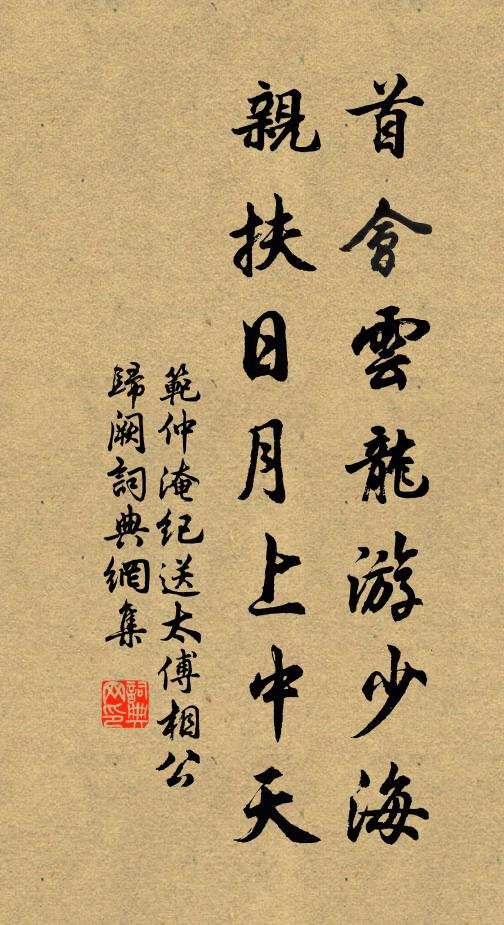 首會雲龍游少海
親扶日月上中天
範仲淹紀送太傅相公
歸闕詞典網集
詞典网印